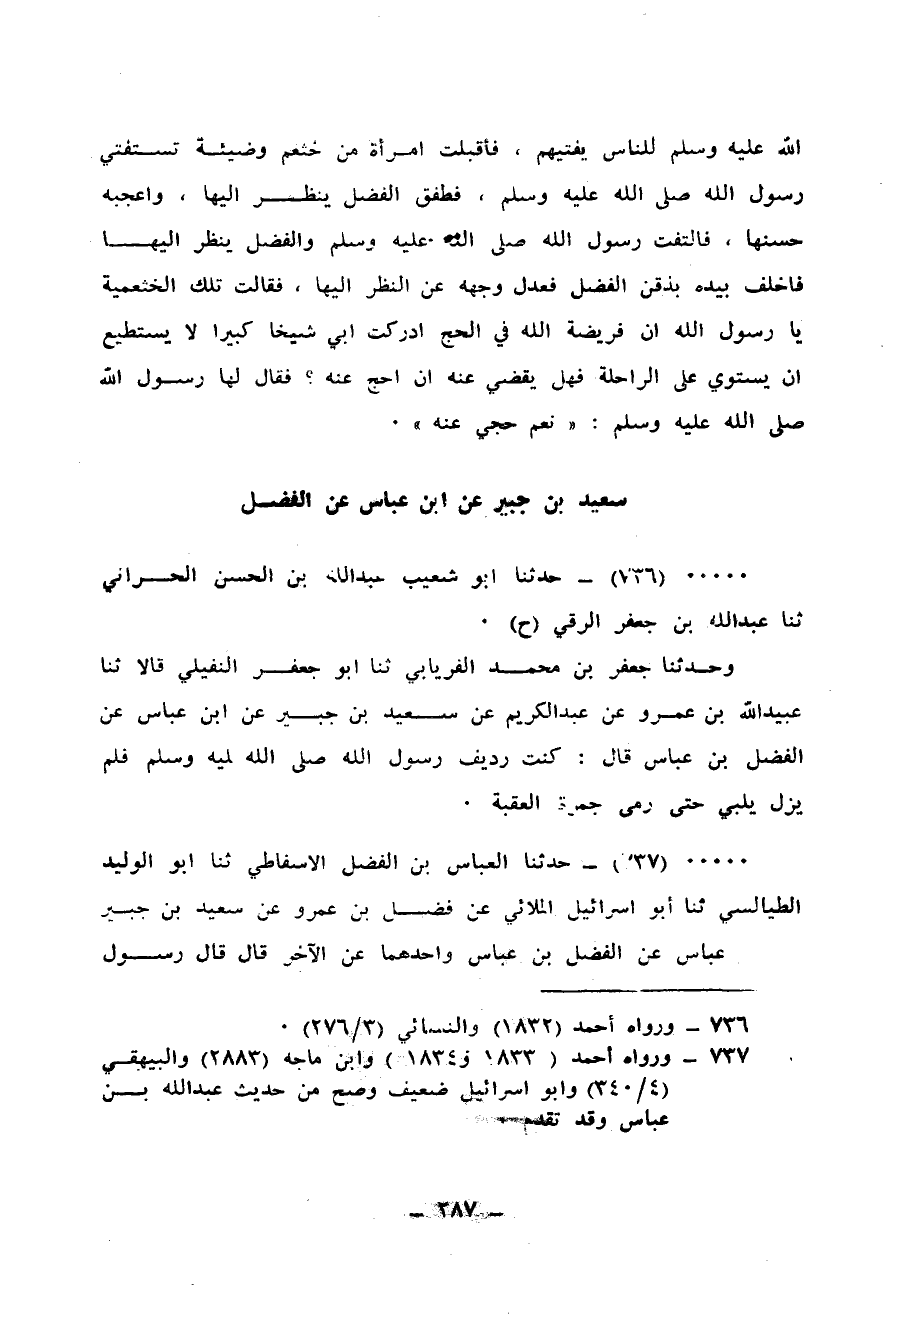 الله عليه وسلم للناس يفتيهم ، فأقبلت امـرأة من خثعم وضيئـة تسـتفتي
رسول الله صلى الله عليه وسلم ، فطفق الفضل ينظـر اليها ، واعجبه
حسنها ، فالتفت رسول الله صلى الله عليه وسلم والفضل ينظر اليهـا
فاخلف بيده بذقن الفضل فعدل وجهه عن النظر اليها ، فقالت تلك الخثعمية
يا رسول الله ان فريضة الله في الحج ادركت ابي شيخا كبيرا لا يستطيع
ان يستوي على الراحلة فهل يقضي عنه ان احج عنه ؟ فقال لها رسـول الله
صلى الله عليه وسلم : « نعم حجي عنه » ٠
سعيد بن جبير عن ابن عباس عن الفضـل
٠٠٠٠٠ (٧٣٦) ـ حدثنا ابو شعيب عبدالله بن الحسن الحـراني
ثنا عبدالله بن جعفر الرقي (ح) ٠
وحـدثنا جعفر بن محمـد الفريابي ثنا ابو جعفـر النفيلي قالا ثنا
عبيدالله بن عمـرو عن عبدالكريم عن سـعيد بن جبـير عن ابن عباس عن
الفضل بن عباس قال : كنت رديف رسول الله صلى الله ليه وسلم فلم
يزل يلبي حتى رمى جمرة العقبة ٠
٠٠٠٠٠ (٧٣٧) ـ حدثنا العباس بن الفضل الاسفاطي ثنا ابو الوليد
الطيالسي ثنا أبو اسرائيل الملائي عن فضـل بن عمرو عن سعيد بن جبـير
عباس عن الفضل بن عباس واحدهما عن الآخر قال قال رسـول
٧٣٦ ـ ورواه أحمد (١٨٣٢) والنسائي (٢٧٦/٣) ٠
٧٣٧ ـ ورواه أحمد ( ١٨٣٣ و١٨٣٤ ) وابن ماجه (٢٨٨٣) والبيهقـي
(٣٤٠/٤) وابو اسرائيل ضعيف وصح من حديث عبدالله بـن
عباس وقد تقدم
ـ ٢٨٧ ـ